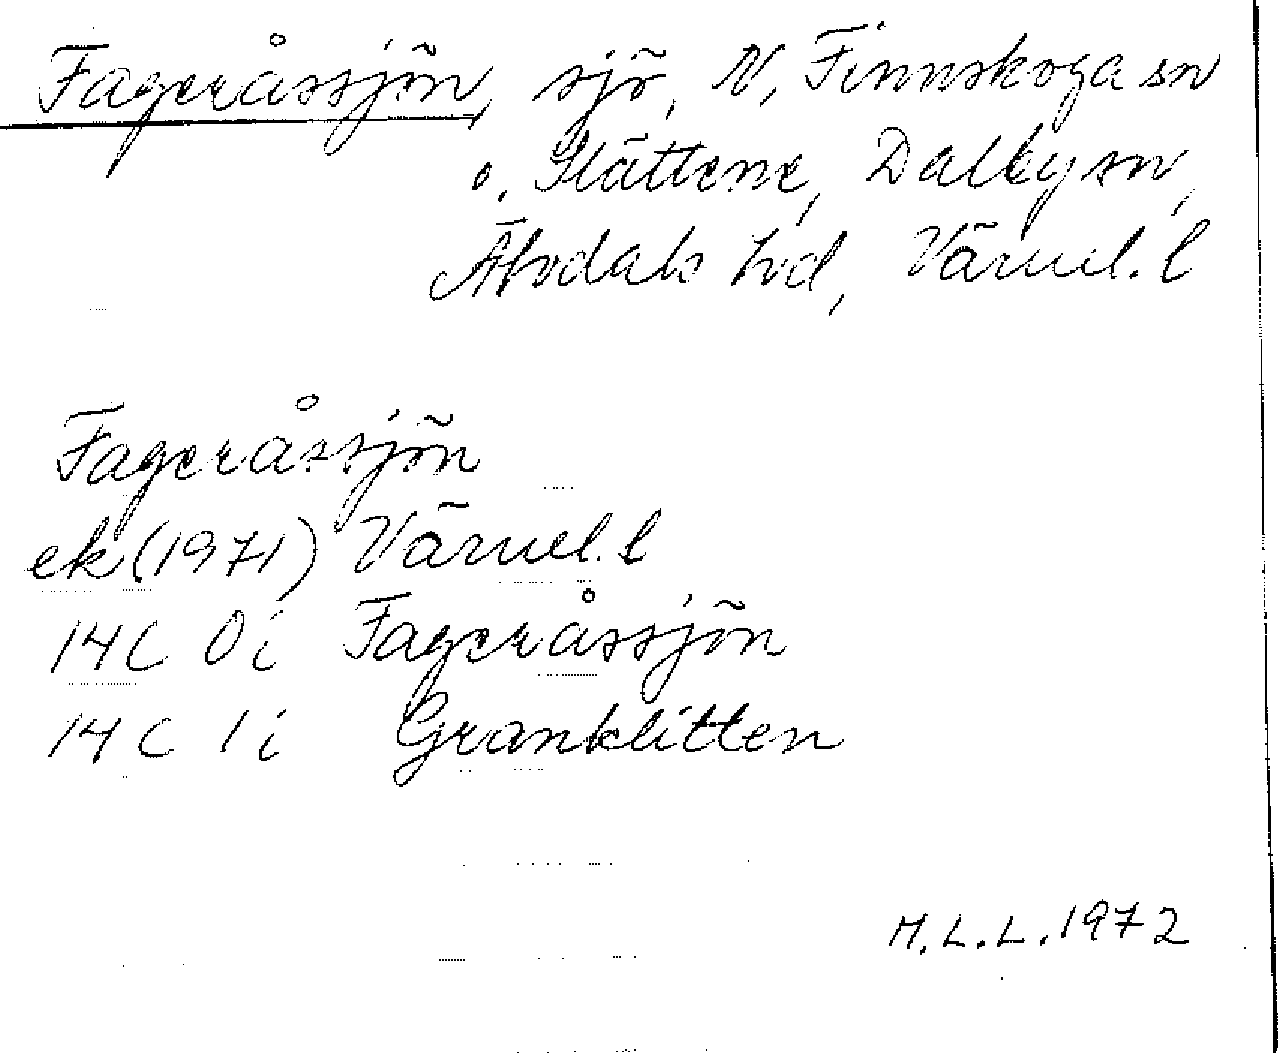 Fageråssjön, sjö, N, Finnskoga sn
o. Slättene, Dalby sn,
Älvdals hd, Värml. l
Fageråssjön
ek (1971) Värml. l
14C 0i Fageråssjön
14C 1i Granklitten
M.L.L. 1972